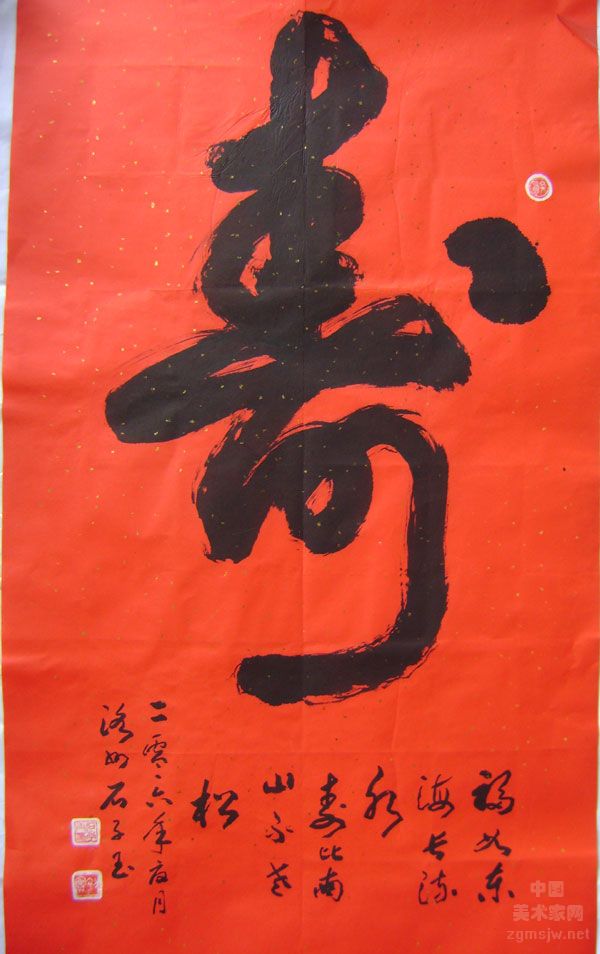 寿
福如东
海长流
水
寿比南
山不老
松
二零六年夏月
洛州石子玉
中国
美术家网
zgmsjw.net